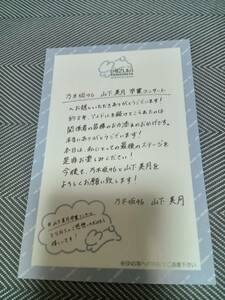 MIZUKI
YAMASHITA
乃木坂46 山下美月 卒業コンサート
へお越しいただきありがとうございます!
約8年、アイドルを続けてこられたのは
関係者の皆様のお力添えのおかげです。
本当にありがとうございます!
本日は、私にとっての最後のステージを
是非お楽しみください!
今後も、乃木坂46と山下美月を
よろしくお願い致します!
乃木坂46 山下美月
#山下美月卒業コンサート
嬉しいです!